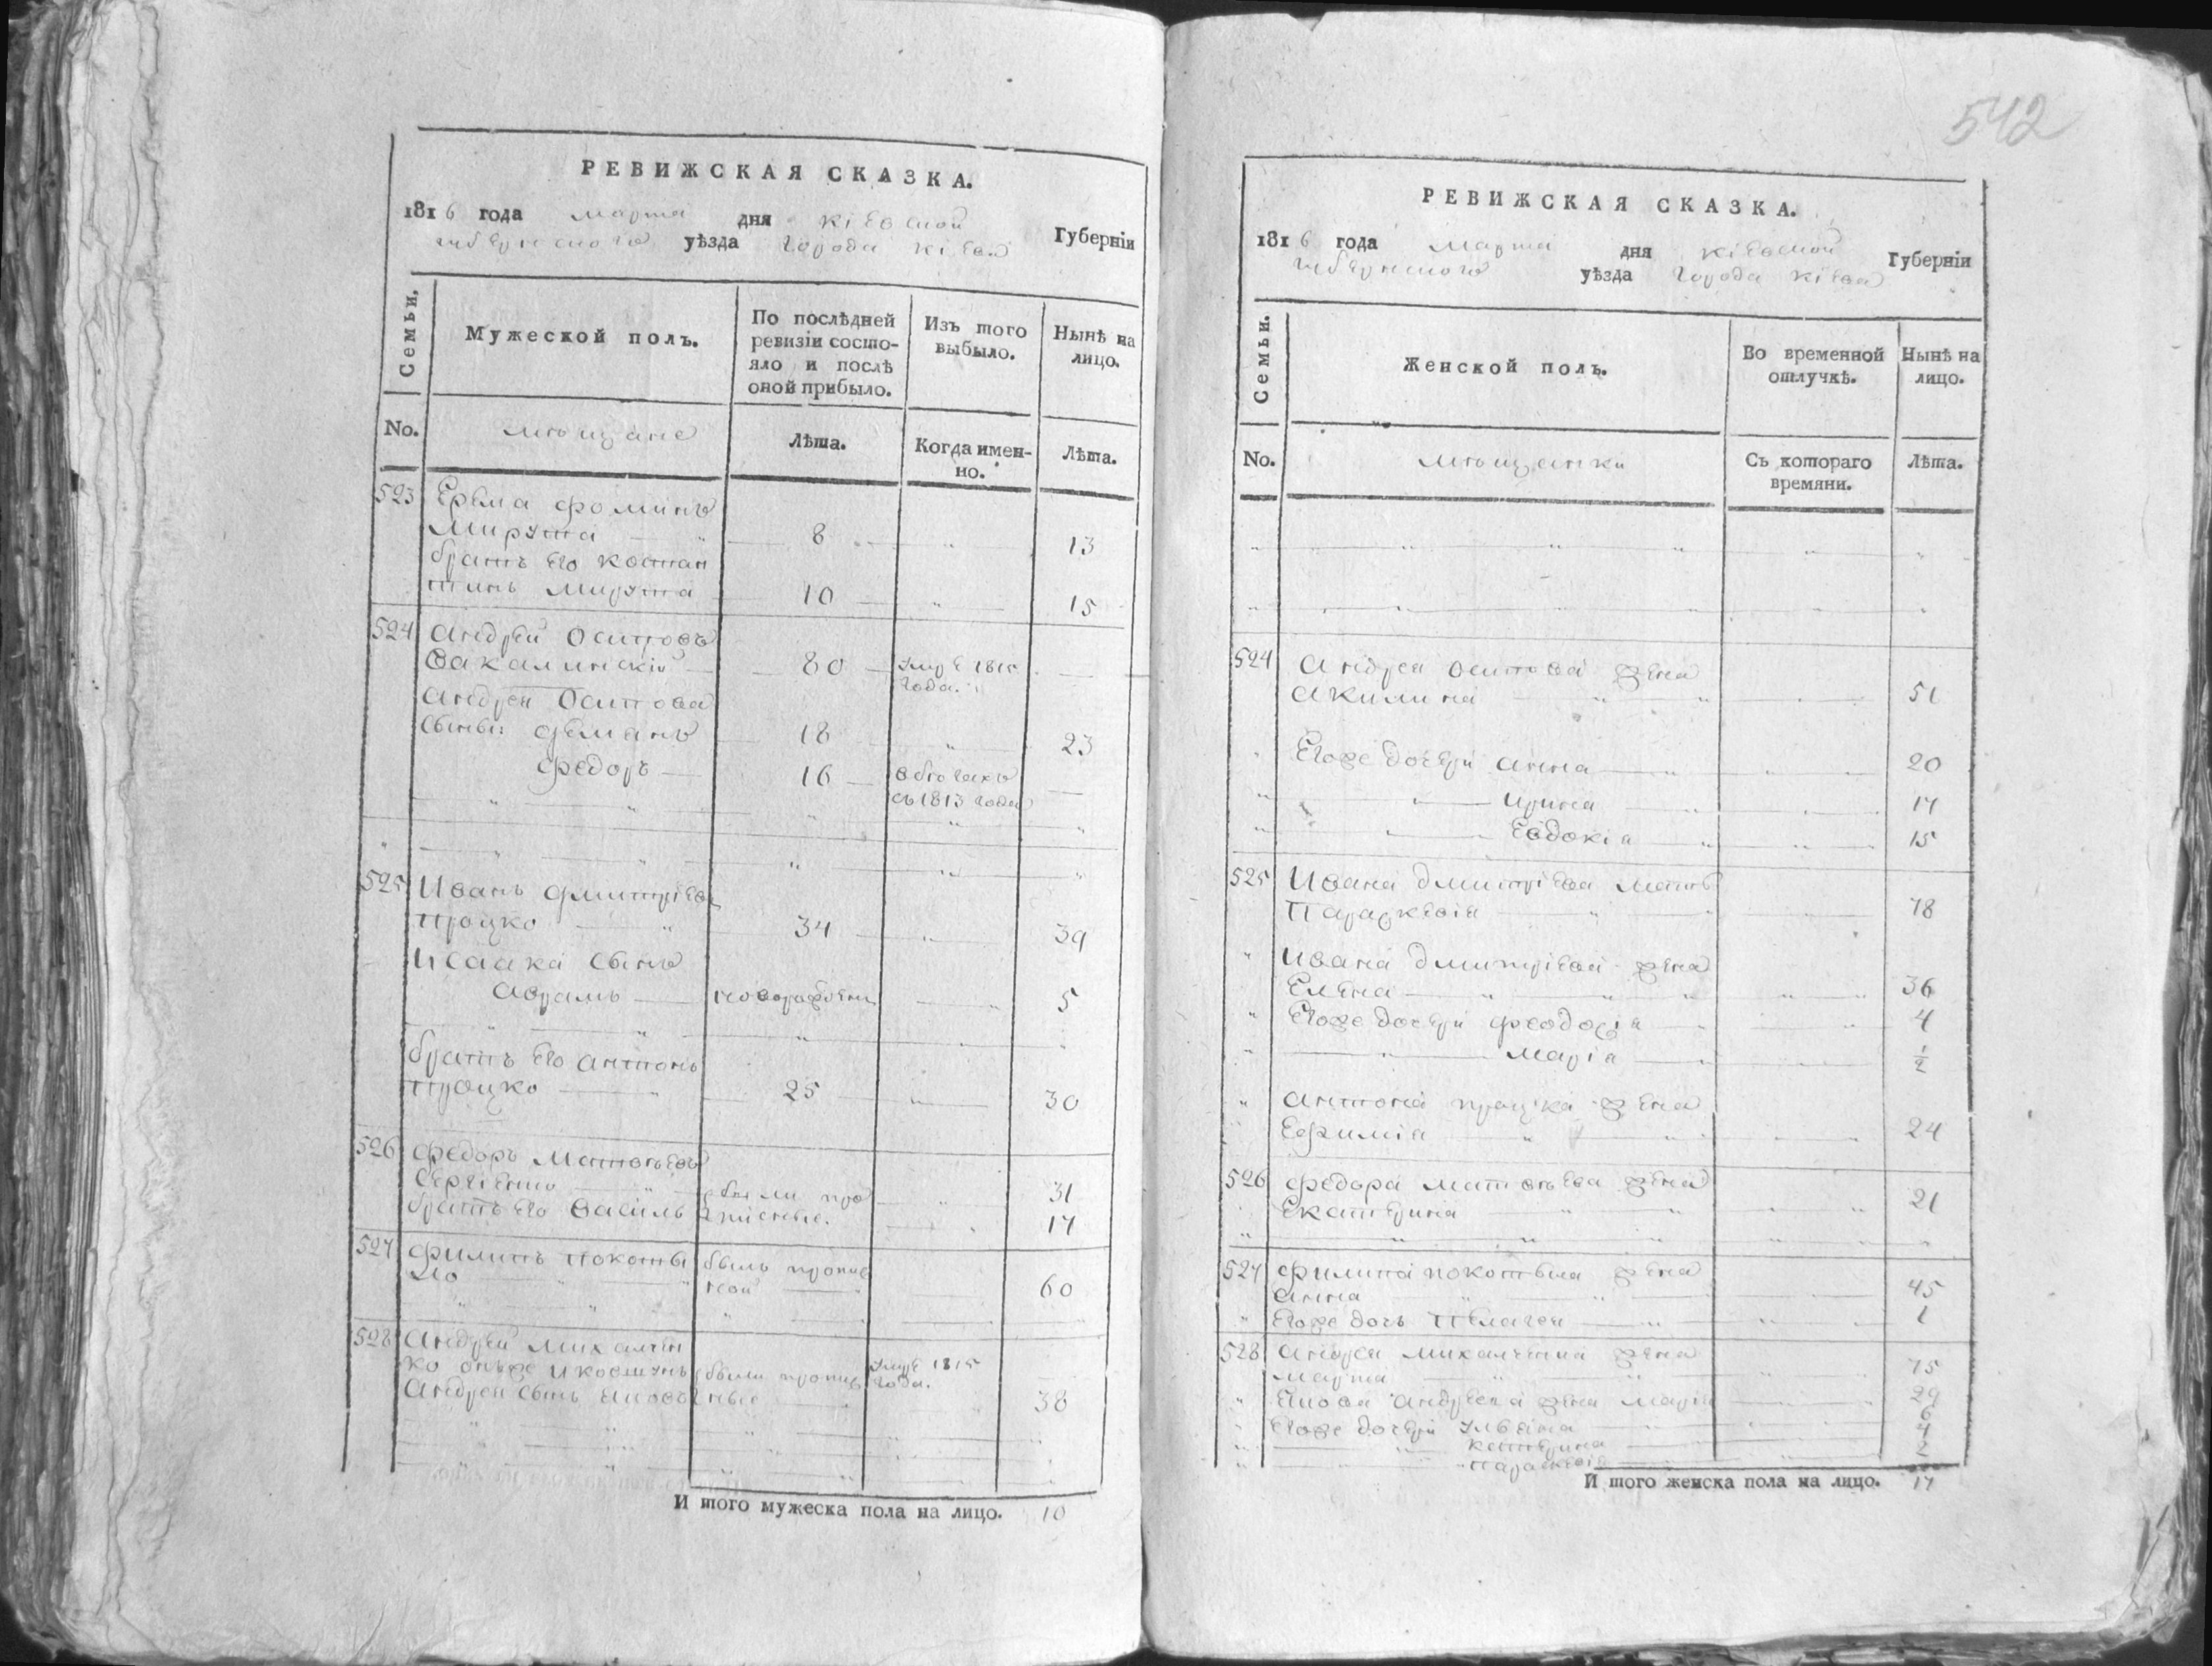 РЕВИЖСКАЯ СКАЗКА.
1816 года марта дня Кіевской Губерніи
губернского уѣзда города Кіева
Семьи.
Мужеской полъ.
По послѣдней ревизіи состояло и послѣ оной прибыло.
Изъ того выбыло.
Нынѣ на лицо.
No. мѣщане Лѣта. Когда именно. Лѣта.
523 Ерема Фоминъ
Мирута 8 13
братъ его Костан
тинъ Мирута 10 15
524 Андрей Осиповъ
Вакалинскій 80 умре 1815 года.
Андрея Осипова
сыны: Демянъ 18 23
Федоръ 16 в бегахъ съ 1813 года
525 Иванъ Дмитріев
Процко 34 39
Исаака сынъ
Аврамъ новорожден 5
братъ его Антонъ
Процко 25 30
526 Федоръ Матвѣевъ
Сергіенко были про 31
братъ его Василь писные. 17
527 Филипъ Покоты
ло былъ пропис ной 60
528 Андрей Михалчен
ко онъже были пропис умре 1815 года.
Андрея сынъ Яковъ ные 38
И того мужеска пола на лицо. 10
542
РЕВИЖСКАЯ СКАЗКА.
1816 года марта дня Кіевской Губерніи
губернского уѣзда города Кіева
Семьи.
Женской полъ.
Во временной отлучкѣ.
Нынѣ на лицо.
No. мѣщанки Съ котораго времяни. Лѣта.
524 Андрея Осипова жена
Акилина 51
Егоже дочери Анна 20
Ирина 17
Евдокія 15
525 Ивана Дмитріева мать
Параркевія 78
Ивана Дмитріева жена
Елена 36
Егоже дочери Феодосія 4
Марія 1/2
Антона Процка жена
Ефимія 24
526 Федора Матвѣева жена
Екатерина 21
527 Филипа Покотыла жена
Анна 45
Егоже дочь Пелагея 1
528 Андрея Михалченка жена
Марта 75
Якова Андреева жена Марія 29
Егоже дочери Ульяна 6
Катерина 4
Параскевія 2
И того женска пола на лицо. 17